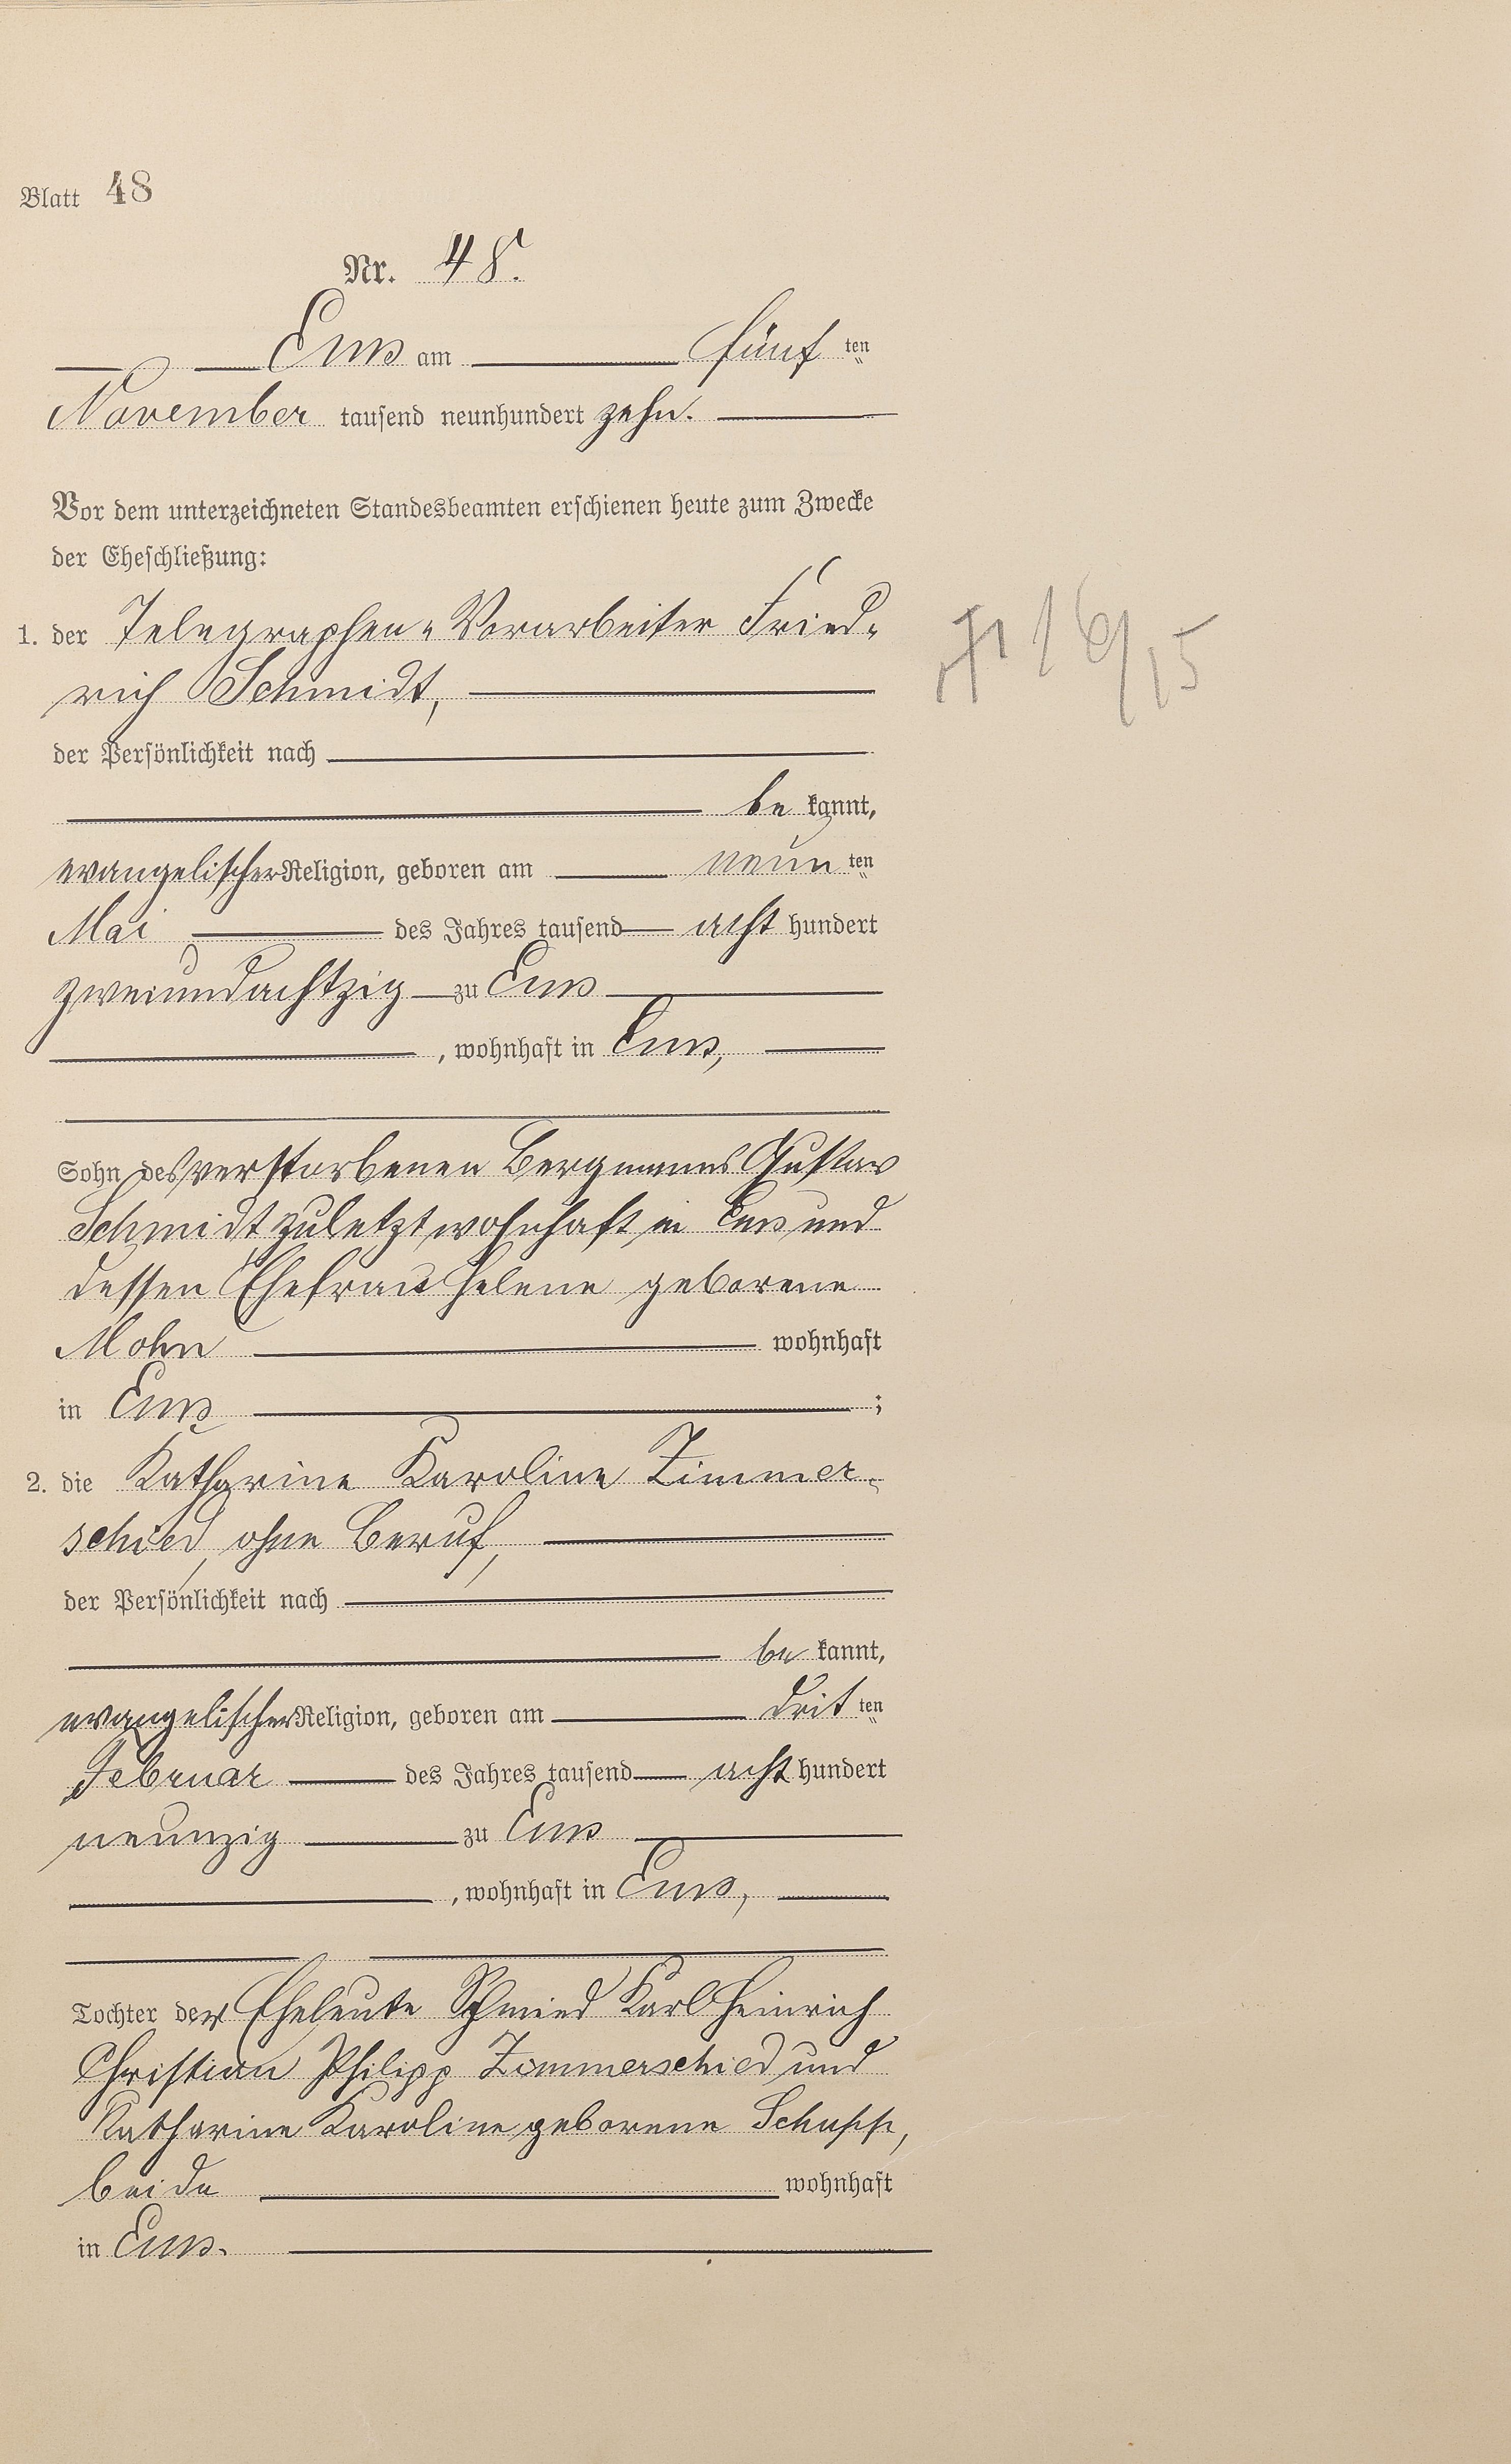 Blatt 48
Nr. 48.
Ems am fünf ten
November tausend neunhundert zehn.
Vor dem unterzeichneten Standesbeamten erschienen heute zum Zwecke
der Eheschließung:
1. der Telegraphen-Vorarbeiter Fried-
rich Schmidt,
der Persönlichkeit nach
be kannt,
evangelischer Religion, geboren am neun ten
Mai des Jahres tausend acht hundert
zweiundachtzig zu Ems
, wohnhaft in Ems,
Sohn des verstorbenen Bergmanns Gustav
Schmidt zuletzt wohnhaft in Ems und
dessen Ehefrau Helene geborene
Mohn wohnhaft
in Ems ;
2. die Katharine Karoline Zimmer-
schied, ohne Beruf,
der Persönlichkeit nach
be kannt,
evangelischer Religion, geboren am drit ten
Februar des Jahres tausend acht hundert
neunzig zu Ems
, wohnhaft in Ems,
Tochter der Eheleute Schmied Karl Heinrich
Christian Philipp Zimmerschied und
Katharine Karoline geborene Schupp,
beide wohnhaft
in Ems.
16/15